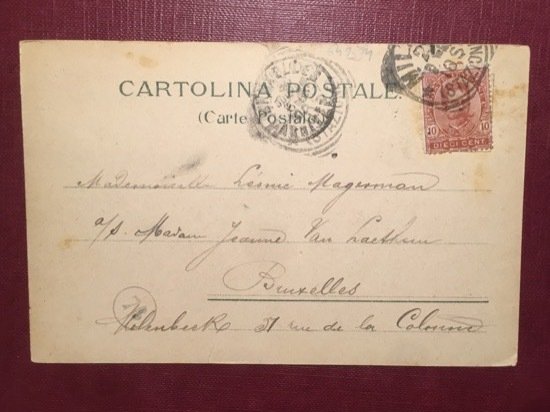 CARTOLINA POSTALE
(Carte Postale)
BRUXELLES
10 10
DIECI CENT.
Mademoiselle Léonie Magerman
a/s. Madam Jeanne Van Laethem
Bruxelles
Molenbeck 51 rue de la Colonne